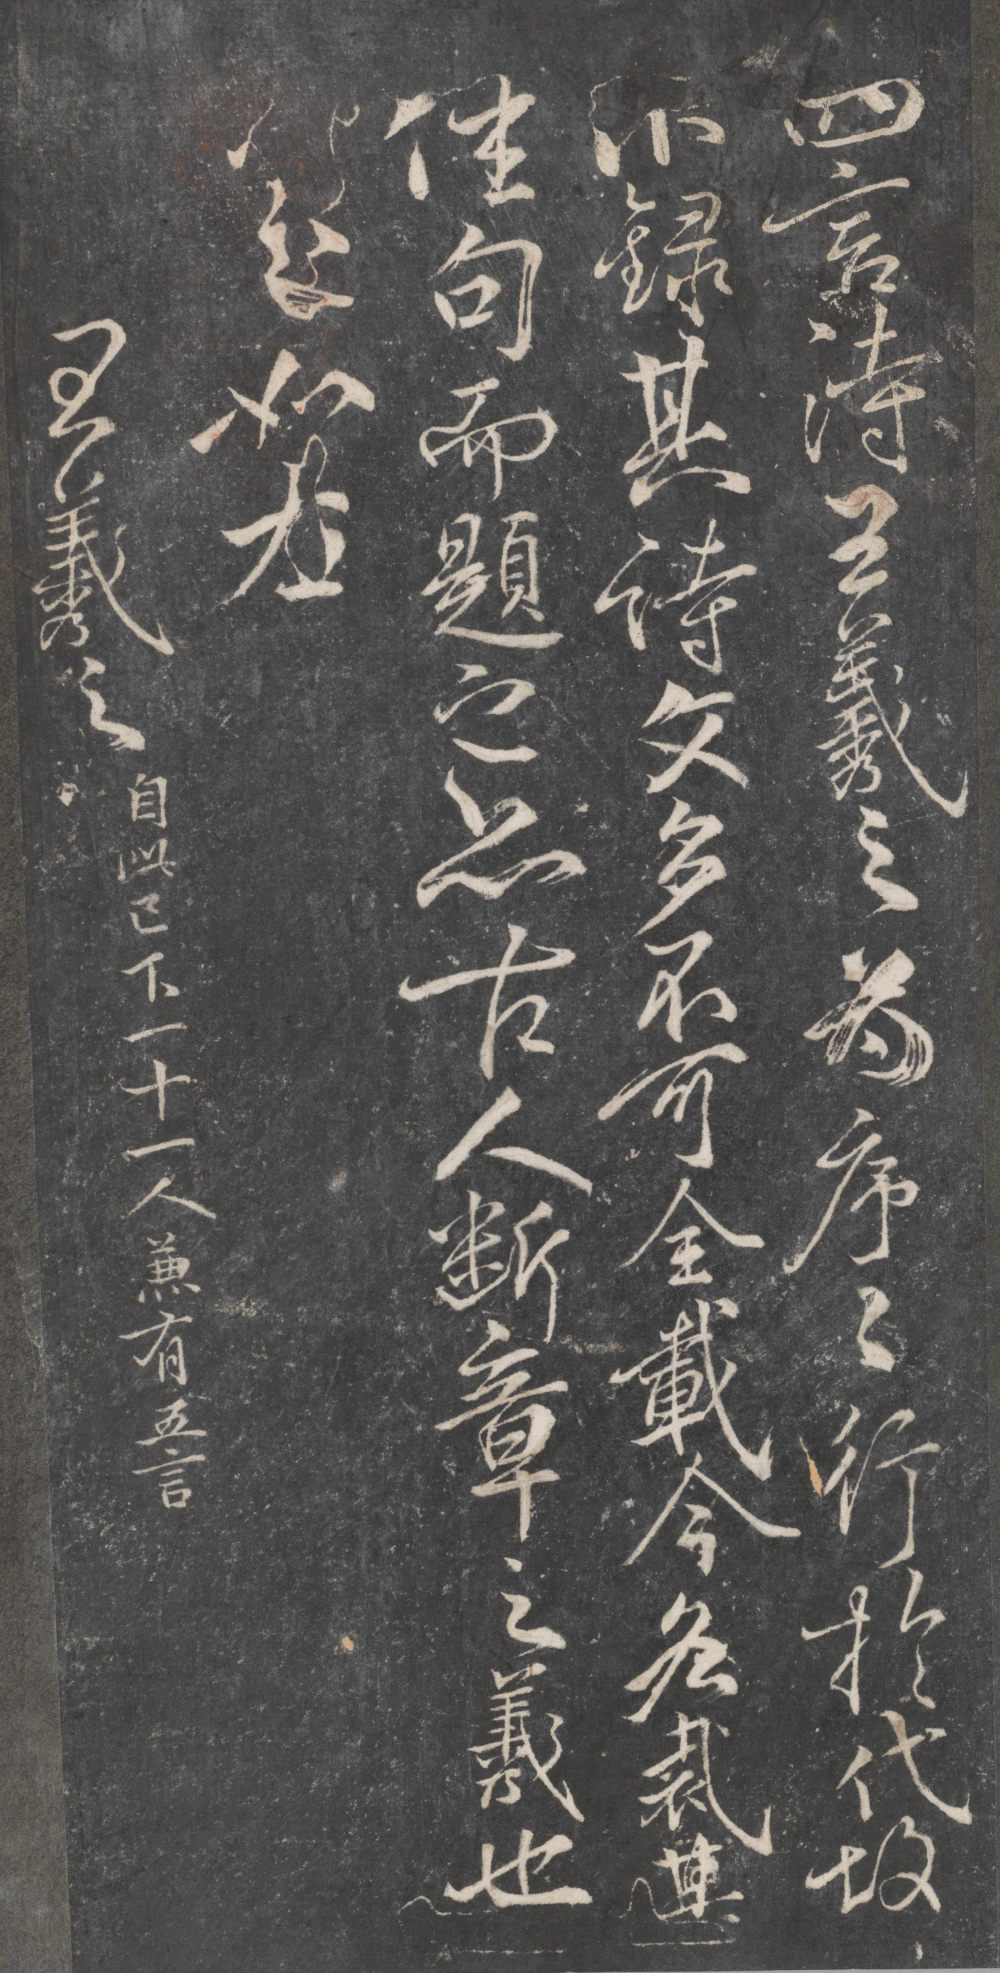 四言詩王羲之為序序行於代故
不録其詩文多不可全載今各裁其
佳句而題之亦古人斷章之義也
如左
王羲之 自此已下一十一人兼有五言